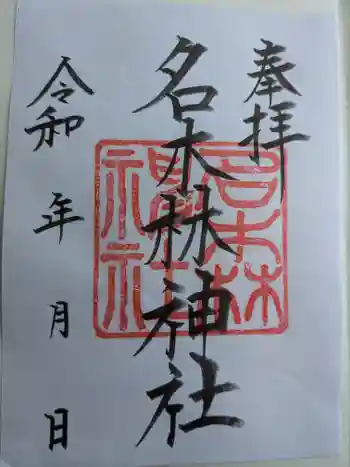 奉拝
名木林神社
令和 年 月 日
名木林神社